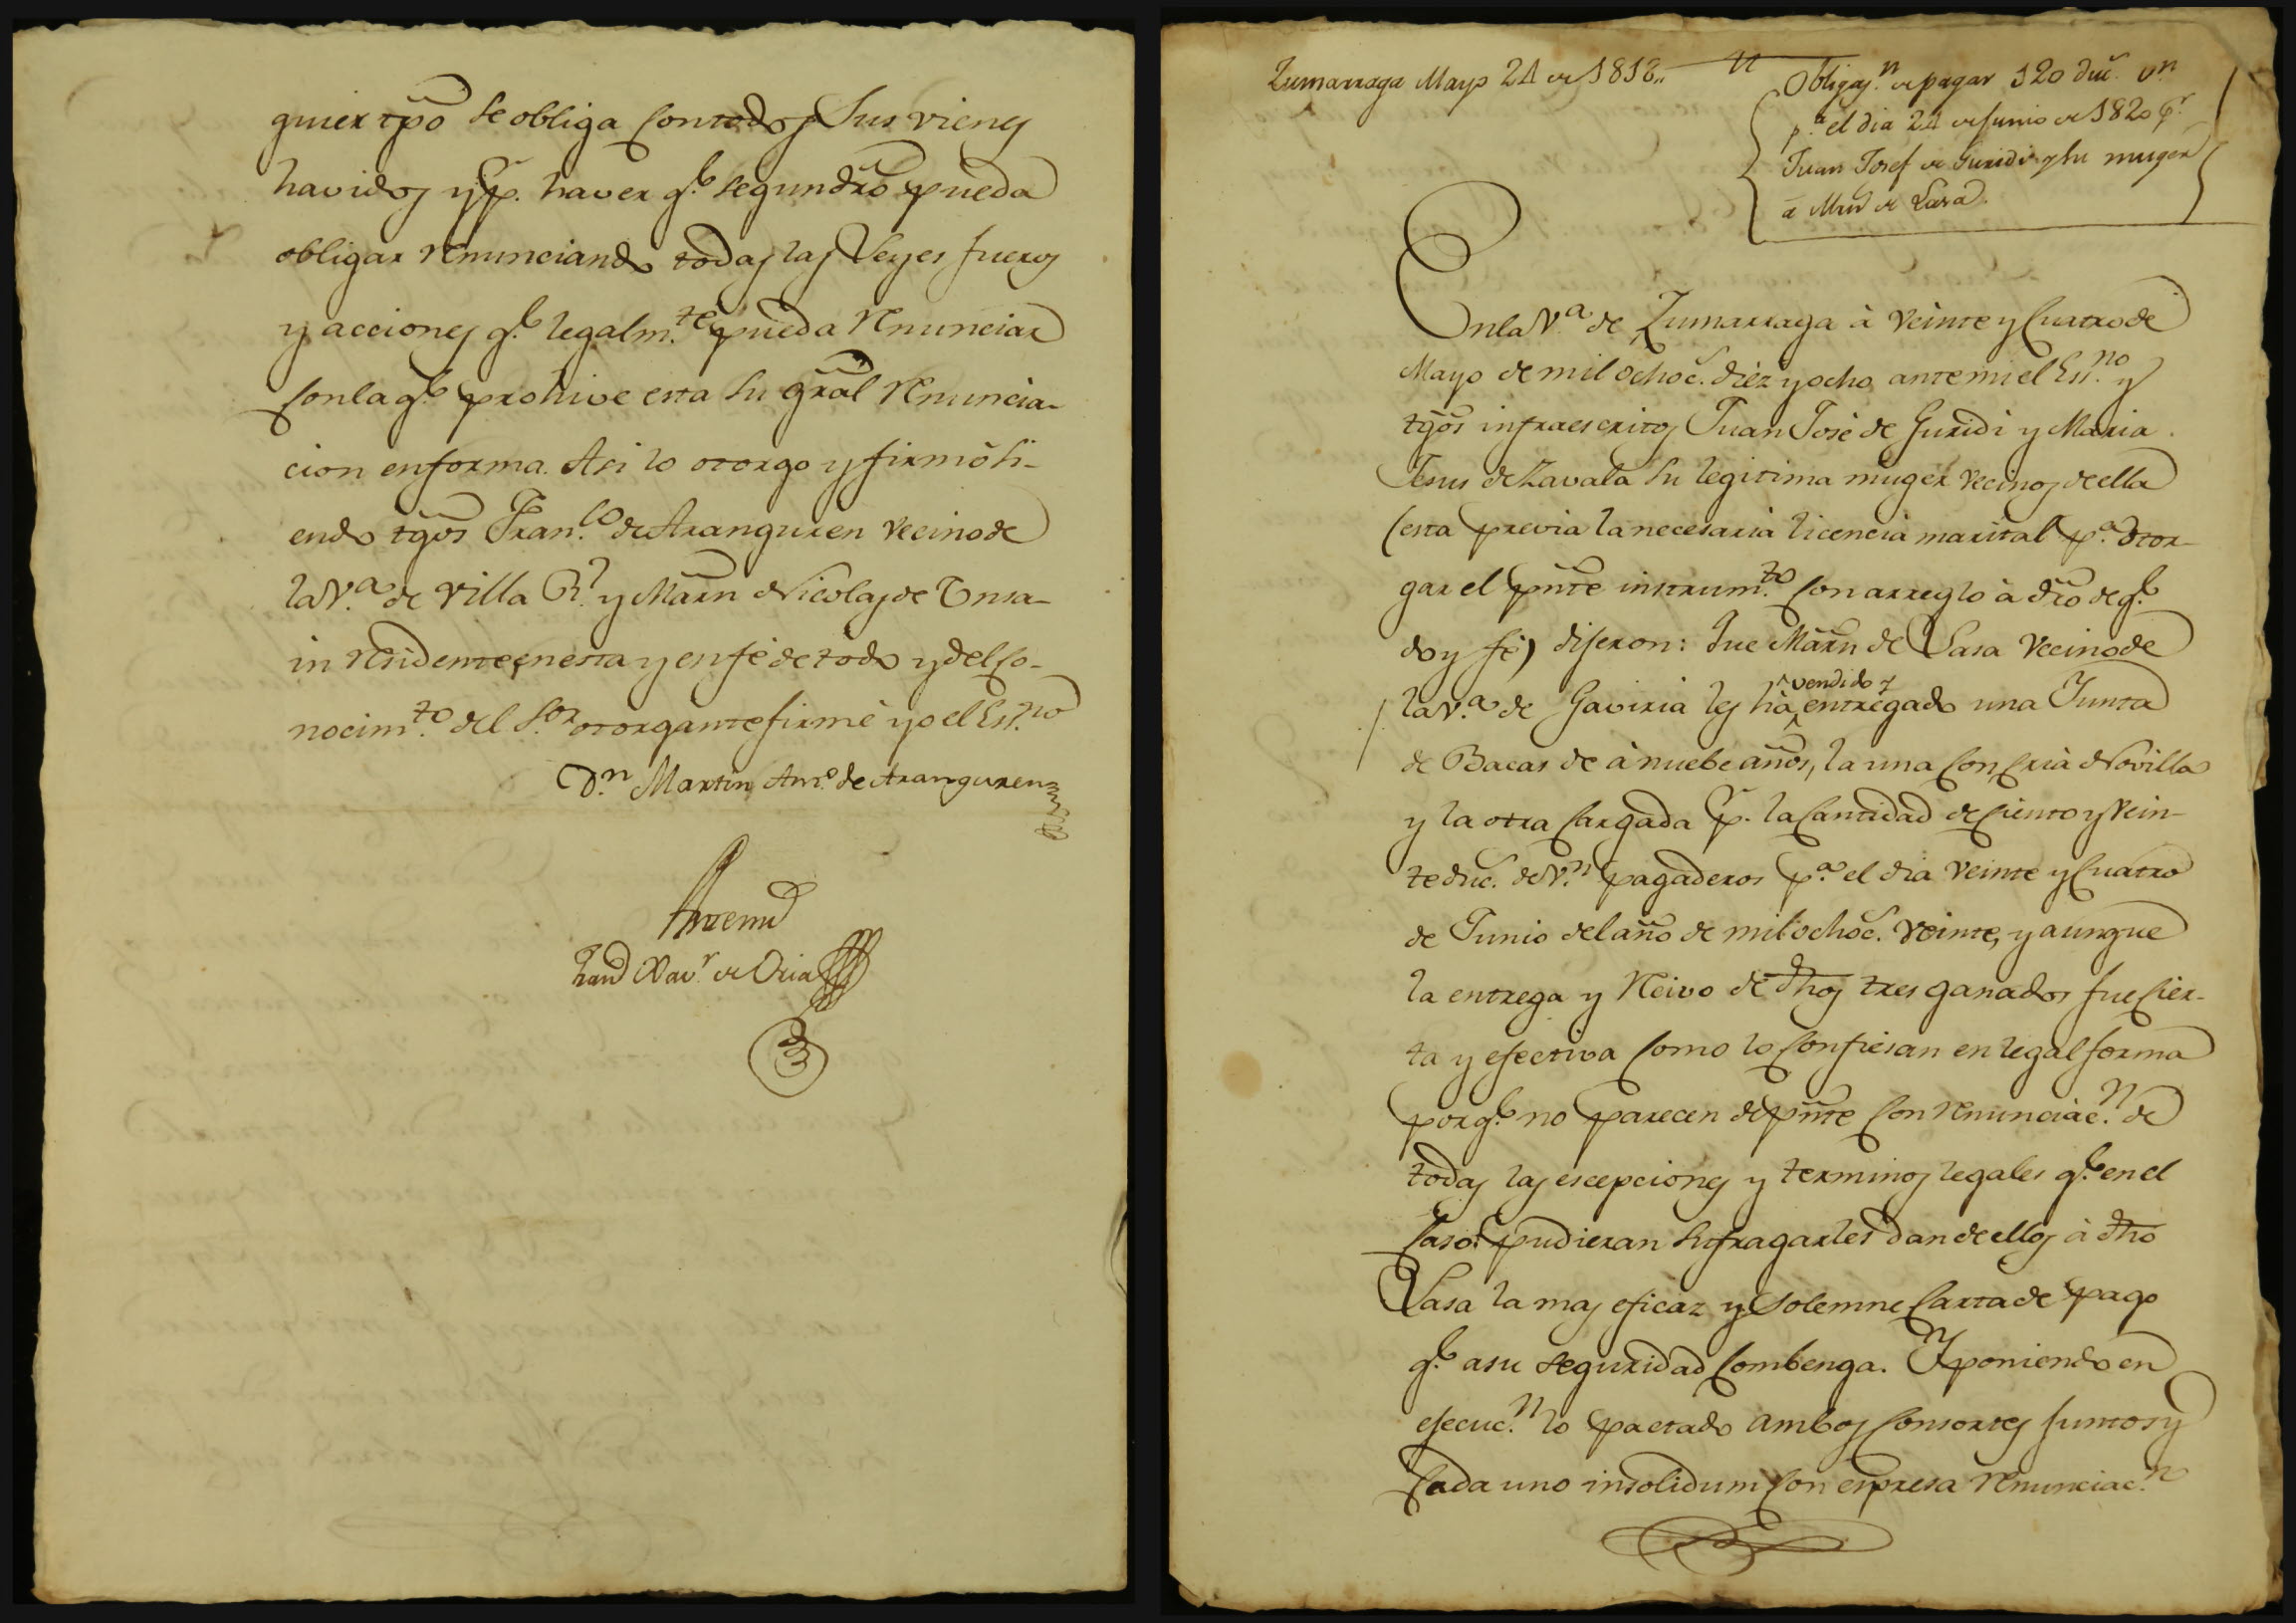 quier tpõ se obliga con todos sus vienes
havidos y p.r haver q.e segun dr̃o pueda
obligar renunciando todas las Leyes fueros
y acciones q.e legalm.te pueda renunciar
con la q.e prohive esta su gr̃al renuncia-
cion en forma. Asi lo otorgo y firmò si-
endo tg̃os Fran.co de Aranguren vecino de
la V.a de Villa R.l y Mar̃n Nicolas de Unsa-
in residente, en esta y en fé de todo y del co-
nocim.to del S.or otorgante firmé yo el Es.no
D.n Martin Ant.o de Aranguren
Antemi
Xav.r de Oria
Zumarraga Mayo 24 de 1818,,
Obligaz.n de pagar 120 duc.s v.n
p.a el dia 24 de Junio de 1820 p.r
Juan Josef de Guridi y su muger
a Mrñ de Lasa.
En la V.a de Zumarraga à veinte y cuatro de
Mayo de mil ochoc.s diez y ocho ante mi el Es.no y
tg̃os infraescritos Juan José de Guridi y Maria
Jesus de Zavala su legitima muger vecinos de ella
(esta previa la necesaria licencia marital p.a otor-
gar el pñte instrum.to con arreglo à dr̃o de q.e
doy fé) dijeron: Que Mar̃n de Lasa vecino de
la V.a de Gaviria les hà ^vendido y^ entregado una Junta
de Bacas de à nuebe años, la una con cria Novilla
y la otra cargada p.r la cantidad de ciento y vein-
te duc.s de V.n pagaderos p.a el dia veinte y cuatro
de Junio del año de mil ochoc.s veinte, y aunque
la entrega y reivo de dhos tres ganados fue cier-
ta y efectiva como lo confiesan en legal forma
porq.e no parecen de pñte con renunciac.n de
todas las escepciones y terminos legales q.e en el
caso pudieran sufragarles dan de ellos à dho
Lasa la mas eficaz y solemne carta de pago
q.e a su seguridad combenga. Y poniendo en
ejecuc.n lo pactado ambos consortes juntos y
cada uno insolidum con espresa renunciac.n